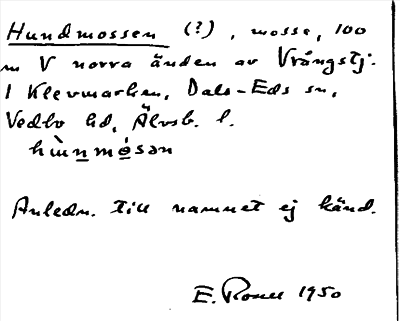 Hundmossen (?), mosse, 100
m V norra änden av Vrångstj.
I Klevmarken, Dals-Eds sn,
Vedbo hd, Älvsb. l.
hùnmósən
Anledn. till namnet ej känd.
E. 1950